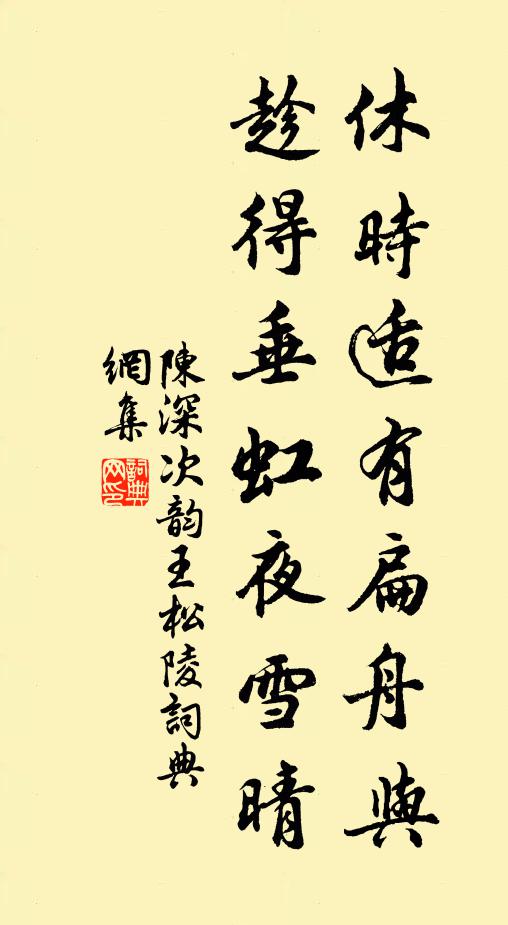 休時适有扁舟與
趁得垂虹夜雪晴
陳深次韵王松陵詞典
網集
詞典
网印